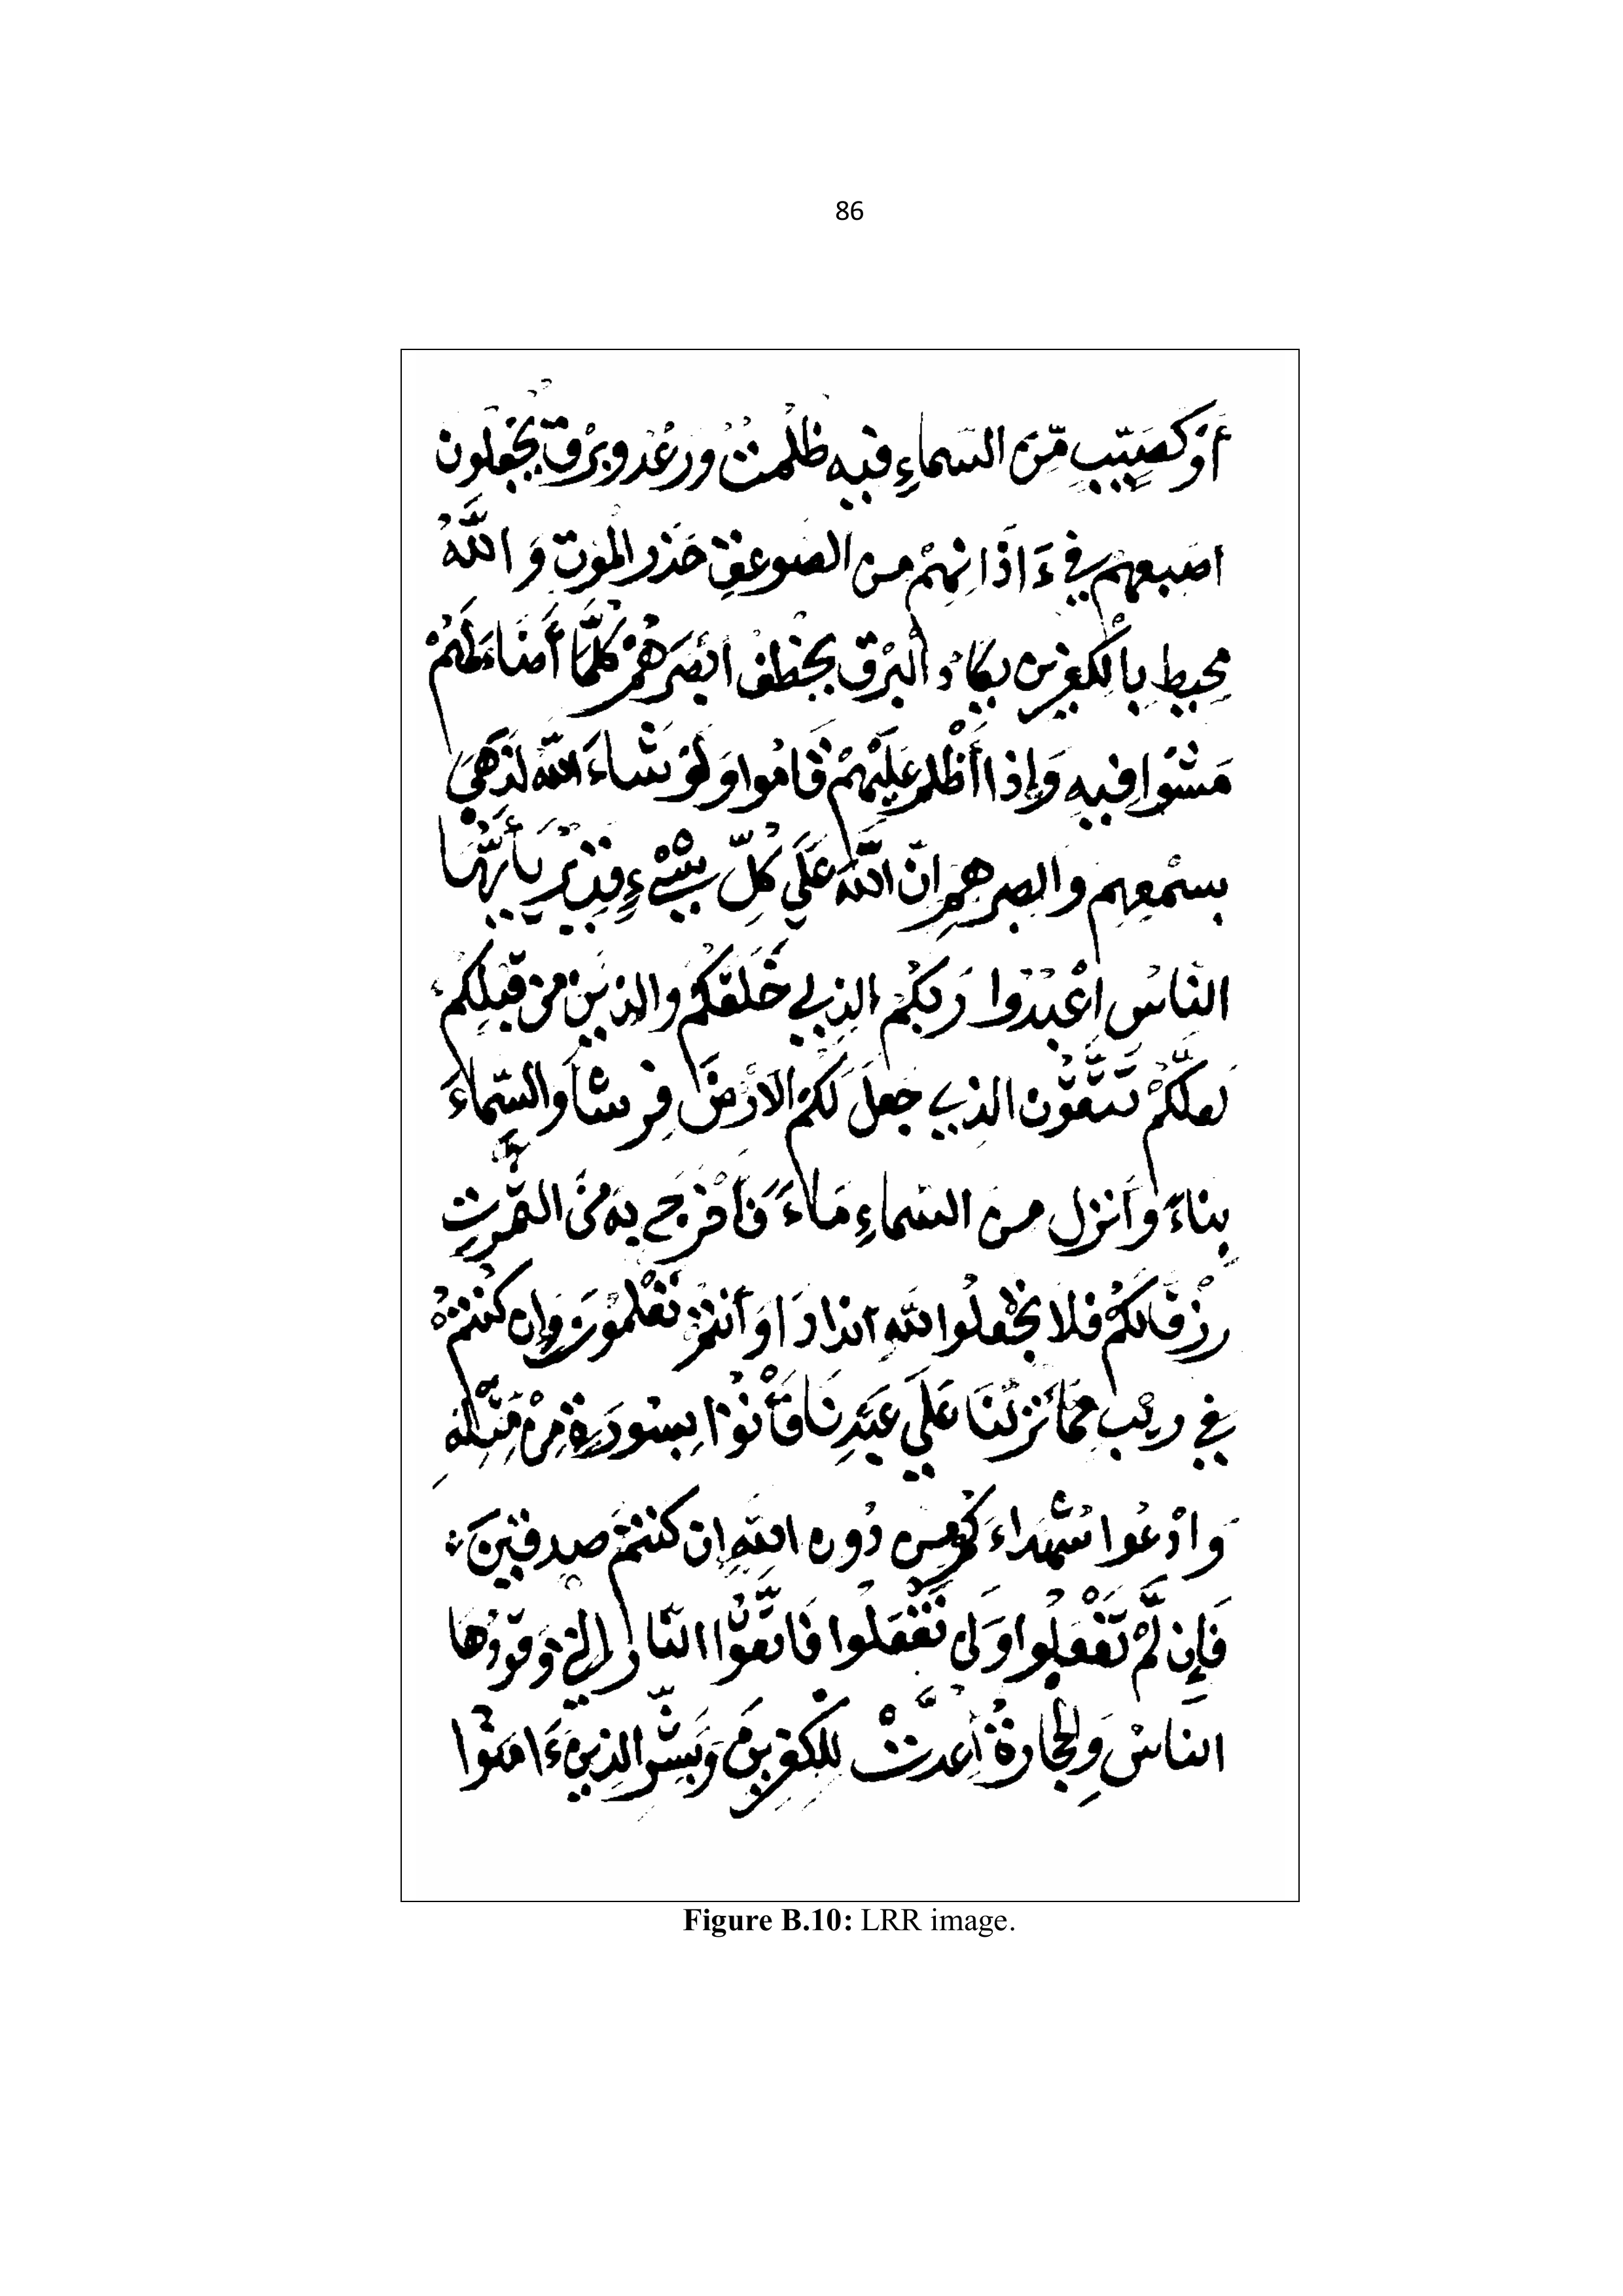 86
أو كصيّب مّن السّماءِ فيه ظلمتٌ ورعْدٌ وبرْق يجْعلون
اصبعهم في ءَاذَانِهِمْ من الصوعق حَذر الموْت وَ اللَّهُ
محِيط بِالْكفرين يكادُ البرْق يخْطف ابْصَرَهُمْ كُلَّمَا أَضَاءَ لَهُمْ
مَشَوْا فيهِ وَإِذا أَظْلم عَلَيْهِمْ قَامُوا وَلَوْ شَاءَ اللَّه لَذَهَبَ
بسمْعِهم وابصرهِم انّ اللَّهَ عَلَي كُلِّ شَيْءٍ قدِيرٌ يَأَيُّهَا
النَّاسُ اعْبُدُوا رَبكُمُ الذِي خَلَقَكُمْ والذِينَ من قَبْلِكُمْ
لَعلَّكُمْ تَتَّقُون الذِي جَعلَ لَكمُ الارْضَ فِرشاً وَالسَّمَاءَ
بِنَاءً وأَنزل من السَّماءِ مَاءً فَأَخْرَجَ بِهِ مِنَ الثمَرتِ
رِزْقًا لكُمْ فلا تجْعلُوا للهِ اندَادًا وَأَنتُمْ تَعْلَمُونَ وَإِن كُنْتُمْ
في ريْبٍ مِمَّا نَزلْنَا عَلَي عَبْدِنَا فَأْتُوا بِسُورَةٍ مِنْ مِثْلِهِ
وَادْعُوا شُهَدَاءَكُم من دُون اللَّهِ إن كنتمْ صدقِينَ
فَإِن لَّمْ تَفْعَلُوا وَلَن تَفْعَلُوا فَاتَّقُوا النَّار التي وَقُودُهَا
النَّاسُ وَالحِجَارةُ أُعِدَّتْ لِلكفرِينَ وَبَشِّرِ الذِينَ ءَامَنُوا
Figure B.10: LRR image.